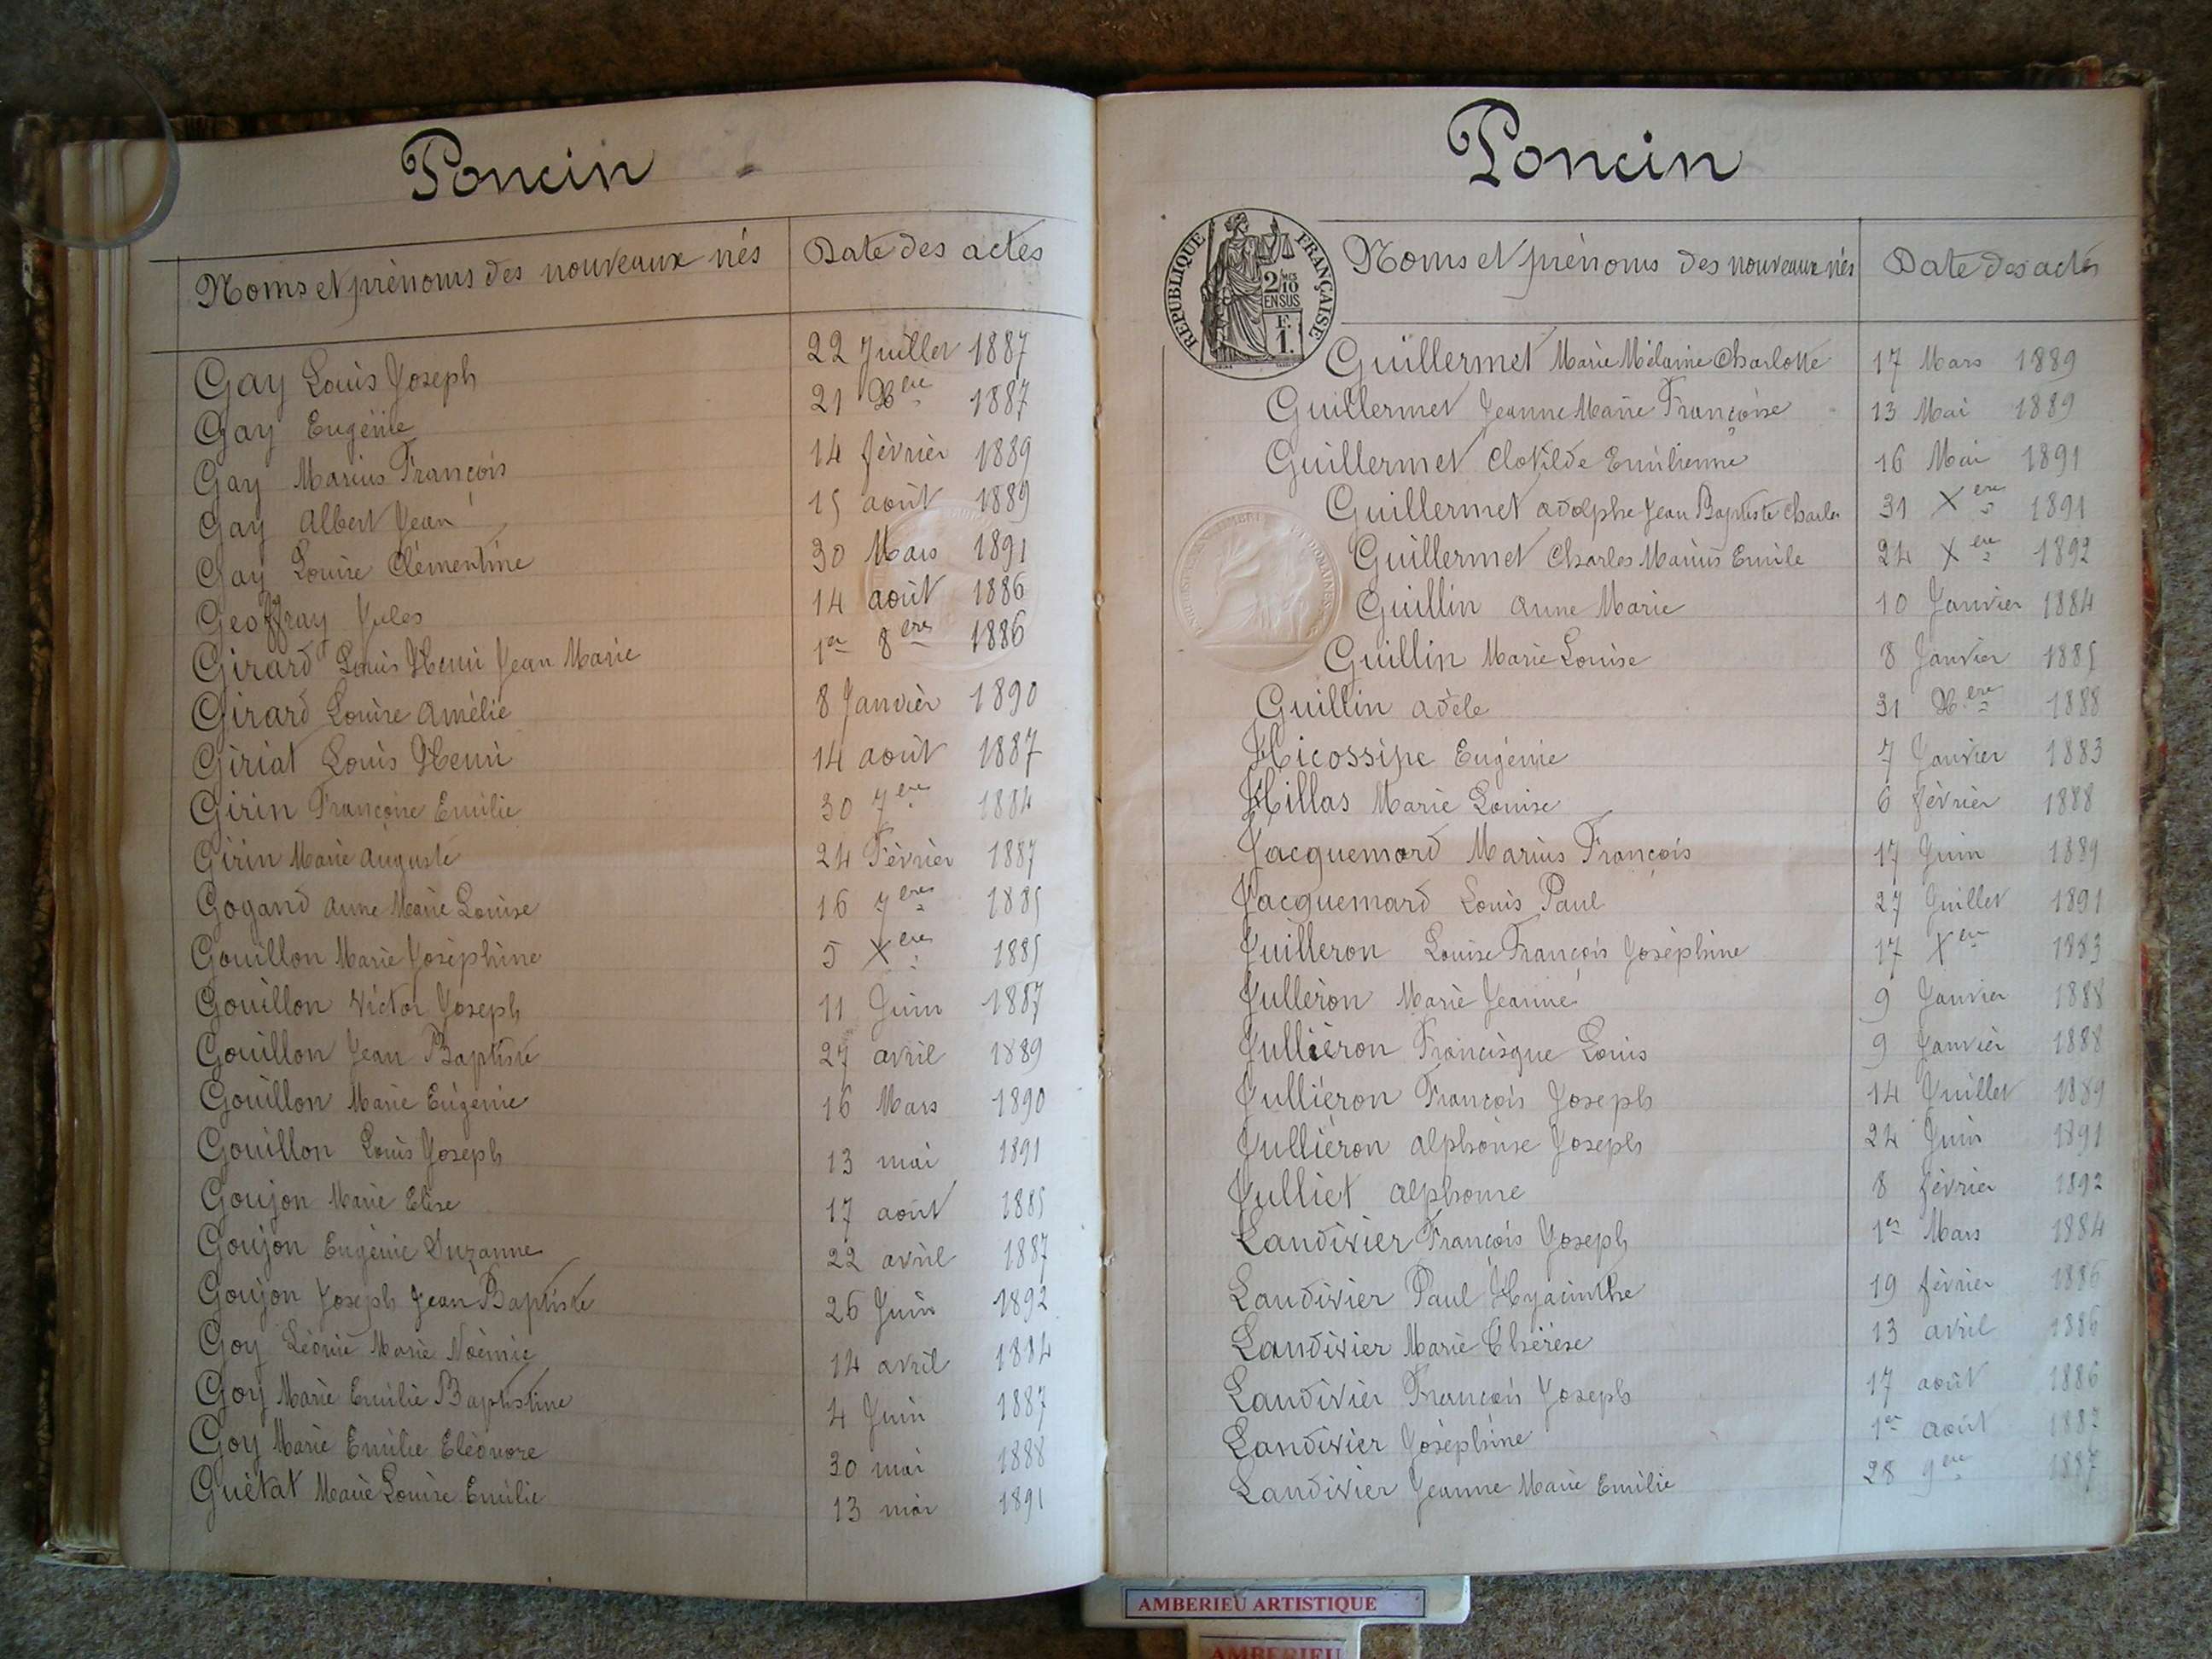 Poncin
Noms et prénoms des nouveaux nés Date des actes
Gay Louis Joseph 22 Juillet 1887
Gay Eugénie 21 Xbre 1887
Gay Marius François 14 février 1889
Gay Albert Jean 15 août 1889
Gay Louise Clémentine 30 Mars 1891
Geoffray Jules 14 août 1886
Girard Louis Henri Jean Marie 1er 8bre 1886
Girard Louise Amélie 8 Janvier 1890
Giriat Louis Henri 14 août 1887
Girin Françoise Emilie 30 7bre 1884
Girin Marie Auguste 24 Février 1887
Gogand Anne Marie Louise 16 7bre 1885
Gouillon Marie Joséphine 5 Xbre 1885
Gouillon Victor Joseph 11 Juin 1887
Gouillon Jean Baptiste 27 avril 1889
Gouillon Marie Eugénie 16 Mars 1890
Gouillon Louis Joseph 13 mai 1891
Goujon Marie Elise 17 août 1885
Goujon Eugénie Suzanne 22 avril 1887
Goujon Joseph Jean Baptiste 26 Juin 1892
Goy Léonie Marie Noémie 14 avril 1884
Goy Marie Emilie Baptistine 4 Juin 1887
Goy Marie Emilie Eléonore 30 mai 1888
Guétat Marie Louise Emilie 13 mai 1891
Poncin
RÉPUBLIQUE FRANÇAISE
2/10 EN SUS
F. 1.
Noms et prénoms des nouveaux nés Date des actes
Guillermet Marie Mélanie Charlotte 17 Mars 1889
Guillermet Jeanne Marie Françoise 13 Mai 1889
Guillermet Clotilde Emilienne 16 Mai 1891
Guillermet Adolphe Jean Baptiste Charles 31 Xbre 1891
Guillermet Charles Marius Emile 24 Xbre 1892
Guillin Anne Marie 10 Janvier 1884
Guillin Marie Louise 8 Janvier 1885
Guillin Adèle 31 Xbre 1888
Hicossipe Eugénie 7 Janvier 1883
Hillas Marie Louise 6 février 1888
Jacquemard Marius François 17 Juin 1889
Jacquemard Louis Paul 27 Juillet 1891
Juilleron Louise François Joséphine 17 Xbre 1883
Julleron Marie Jeanne 9 Janvier 1888
Julliéron Francisque Louis 9 Janvier 1888
Julliéron François Joseph 14 Juillet 1889
Julliéron Alphonse Joseph 24 Juin 1891
Julliet Alphonse 8 février 1892
Landivier François Joseph 1er Mars 1884
Landivier Paul Hyacinthe 19 février 1886
Landivier Marie Thérèse 13 avril 1886
Landivier François Joseph 17 août 1886
Landivier Joséphine 1er août 1887
Landivier Jeanne Marie Emilie 28 9bre 1887
AMBERIEU ARTISTIQUE
AMBERIEU